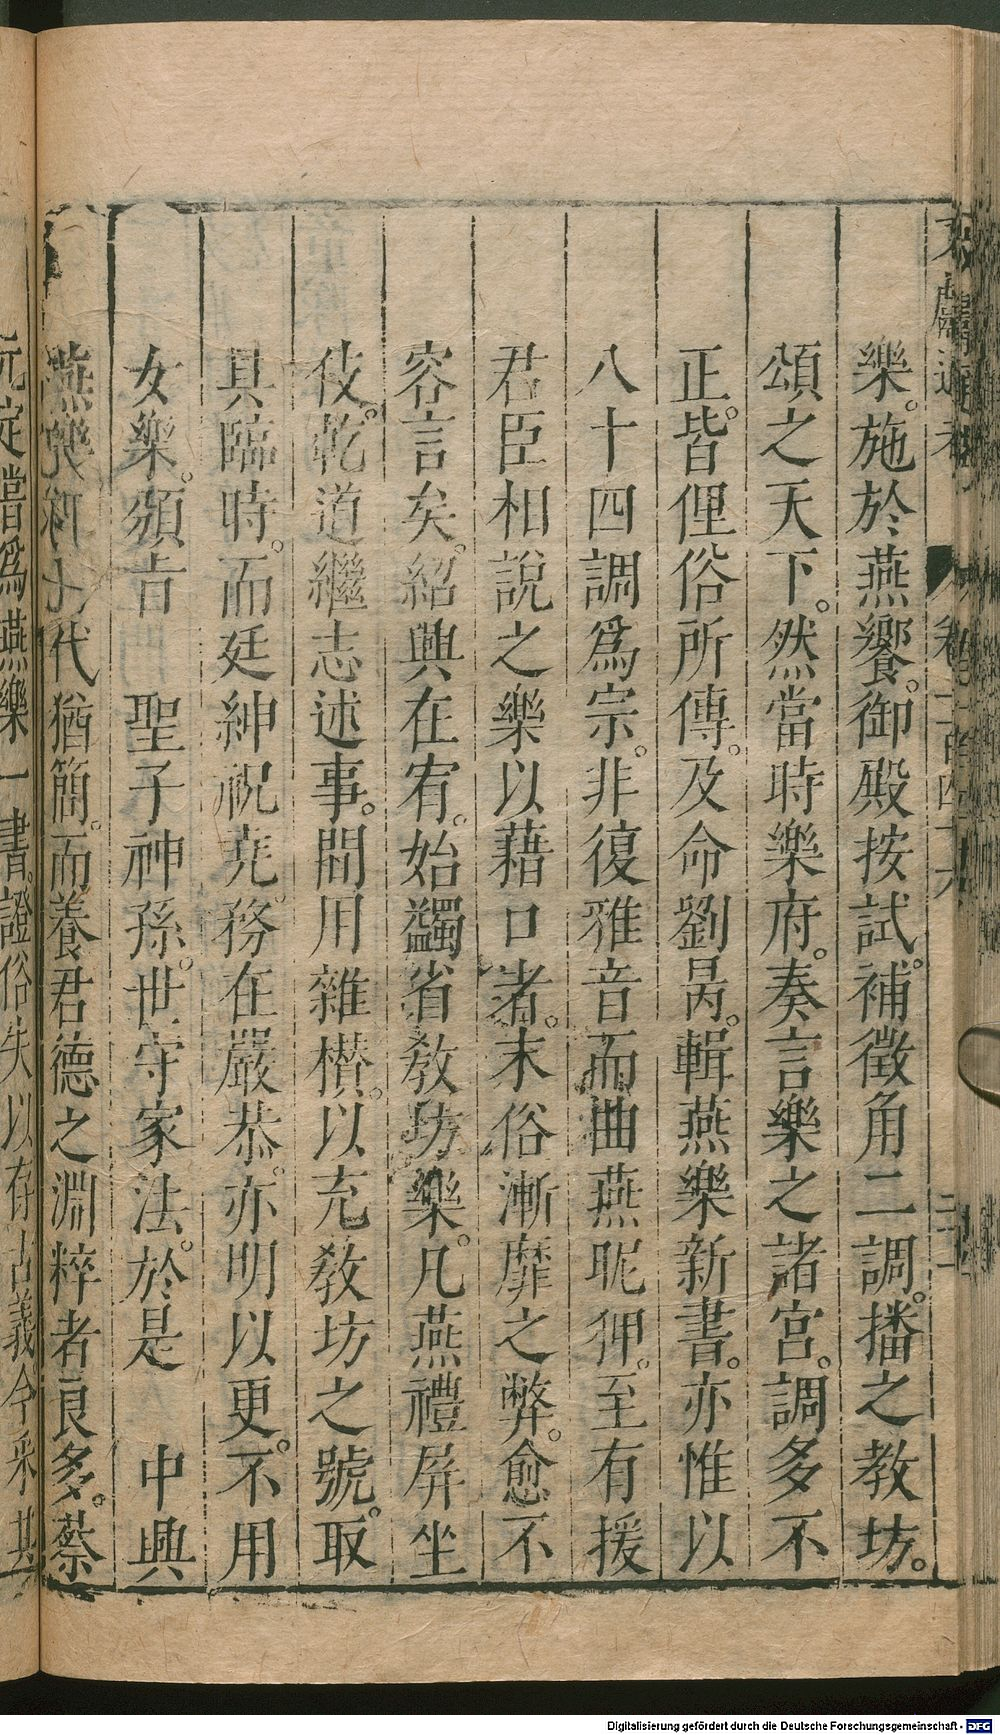 文獻通考 卷一百四十六
樂。施於燕饗。御殿按試。補徵角二調。播之教坊。
頌之天下。然當時樂府。奏言樂之諸宮。調多不
正。皆俚俗所傳。及命劉昺。輯燕樂新書。亦惟以
八十四調爲宗。非復雅音而曲燕昵狎。至有援
君臣相說之樂以藉口者。末俗漸靡之弊。愈不
容言矣。紹興在宥。始蠲省教坊樂。凡燕禮屏坐
伎。乾道繼志述事。間用雜攅。以充教坊之號。取
具臨時。而廷紳祝堯。務在嚴恭。亦明以更。不用
女樂。頒㫖 聖子神孫。世守家法。於是 中興
燕樂 代猶簡。而養君德之淵粹者良多。蔡
元定嘗爲燕樂一書。證俗失以存古義今采其
Digitalisierung gefördert durch die Deutsche Forschungsgemeinschaft - DFG